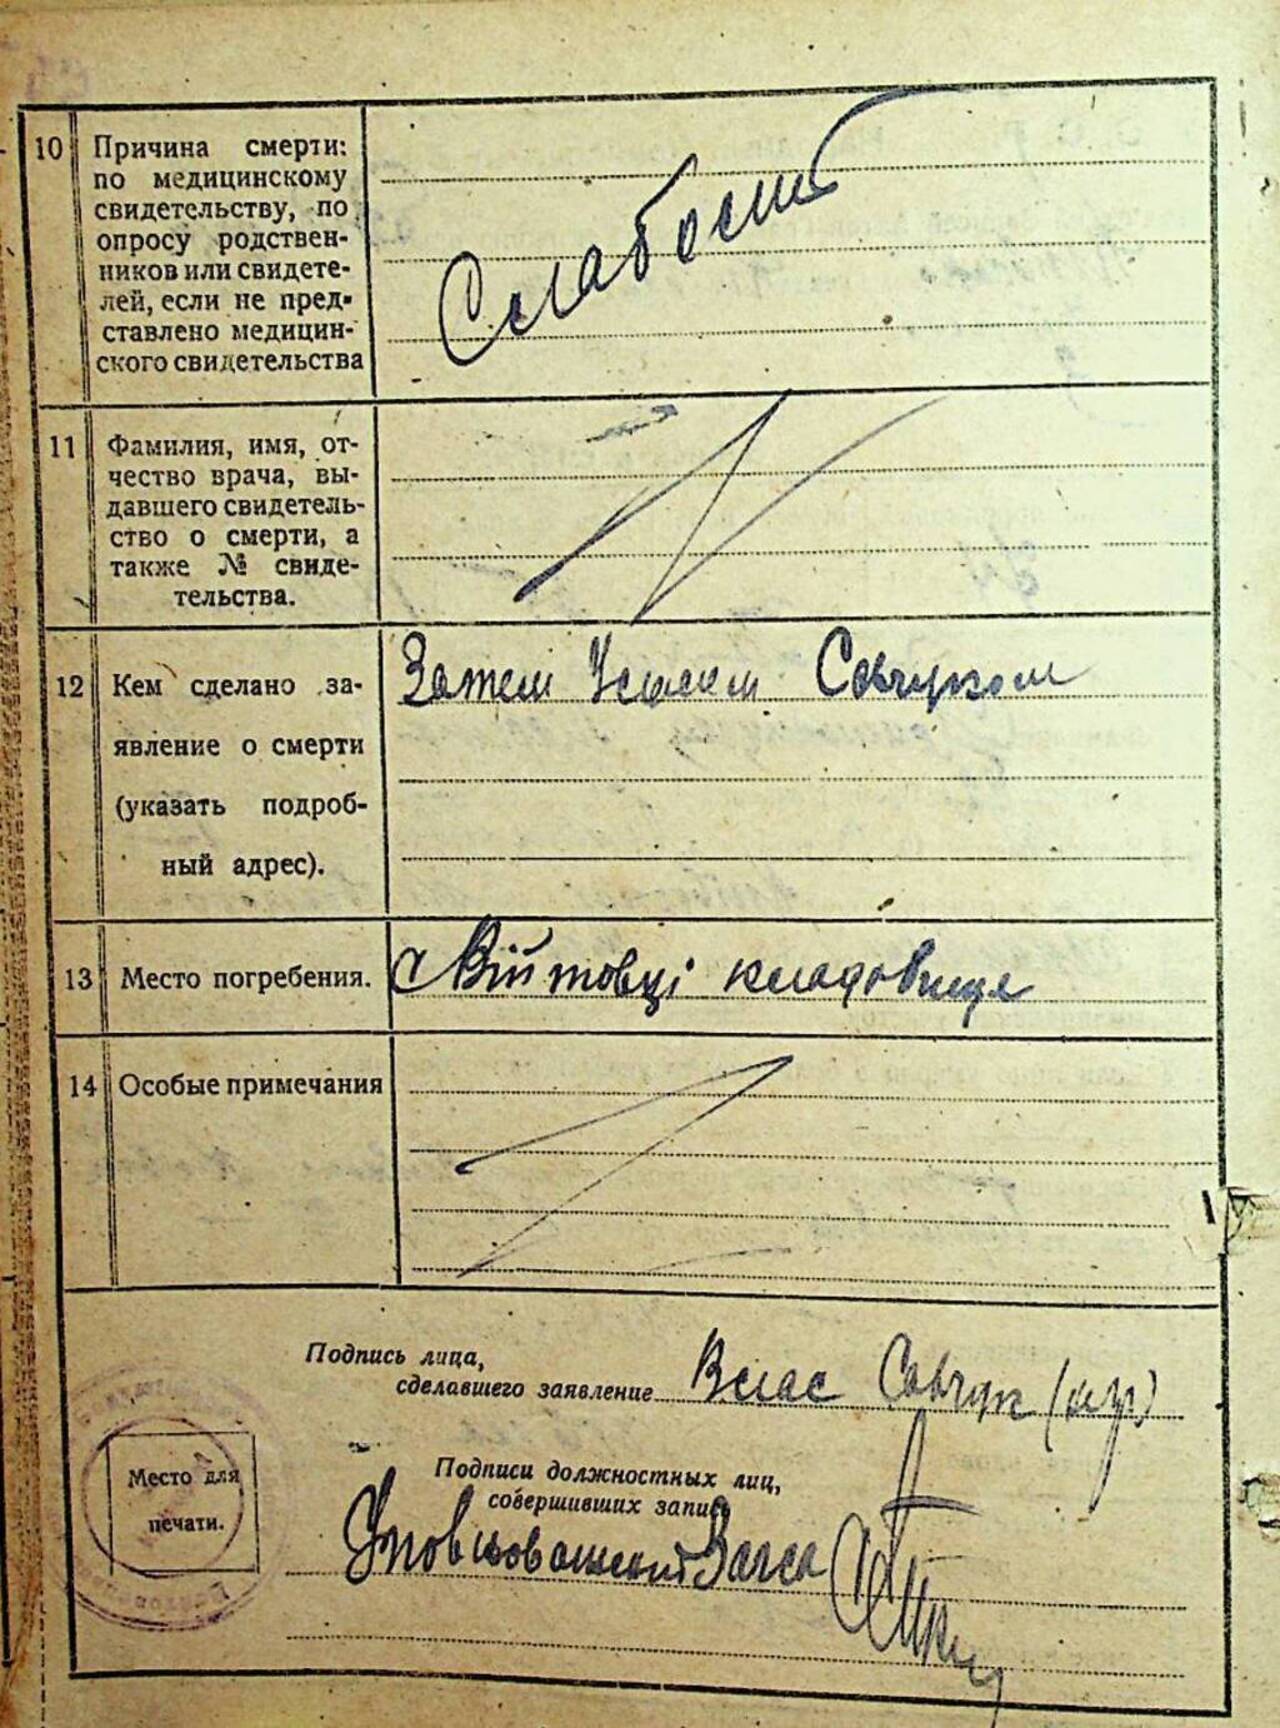 10 Причина смерти:
по медицинскому
свидетельству, по
опросу родствен-
ников или свидете-
лей, если не пред-
ставлено медицин-
ского свидетельства
Слабость
11 Фамилия, имя, от-
чество врача, вы-
давшего свидетель-
ство о смерти, а
также № свиде-
тельства.
12 Кем сделано за-
явление о смерти
(указать подроб-
ный адрес).
Савчуком
13 Место погребения.
с Війтовці кладовище
14 Особые примечания
Подпись лица,
сделавшего заявление Влас Савчук
Подписи должностных лиц,
совершивших запись
Место для
печати.
Загса